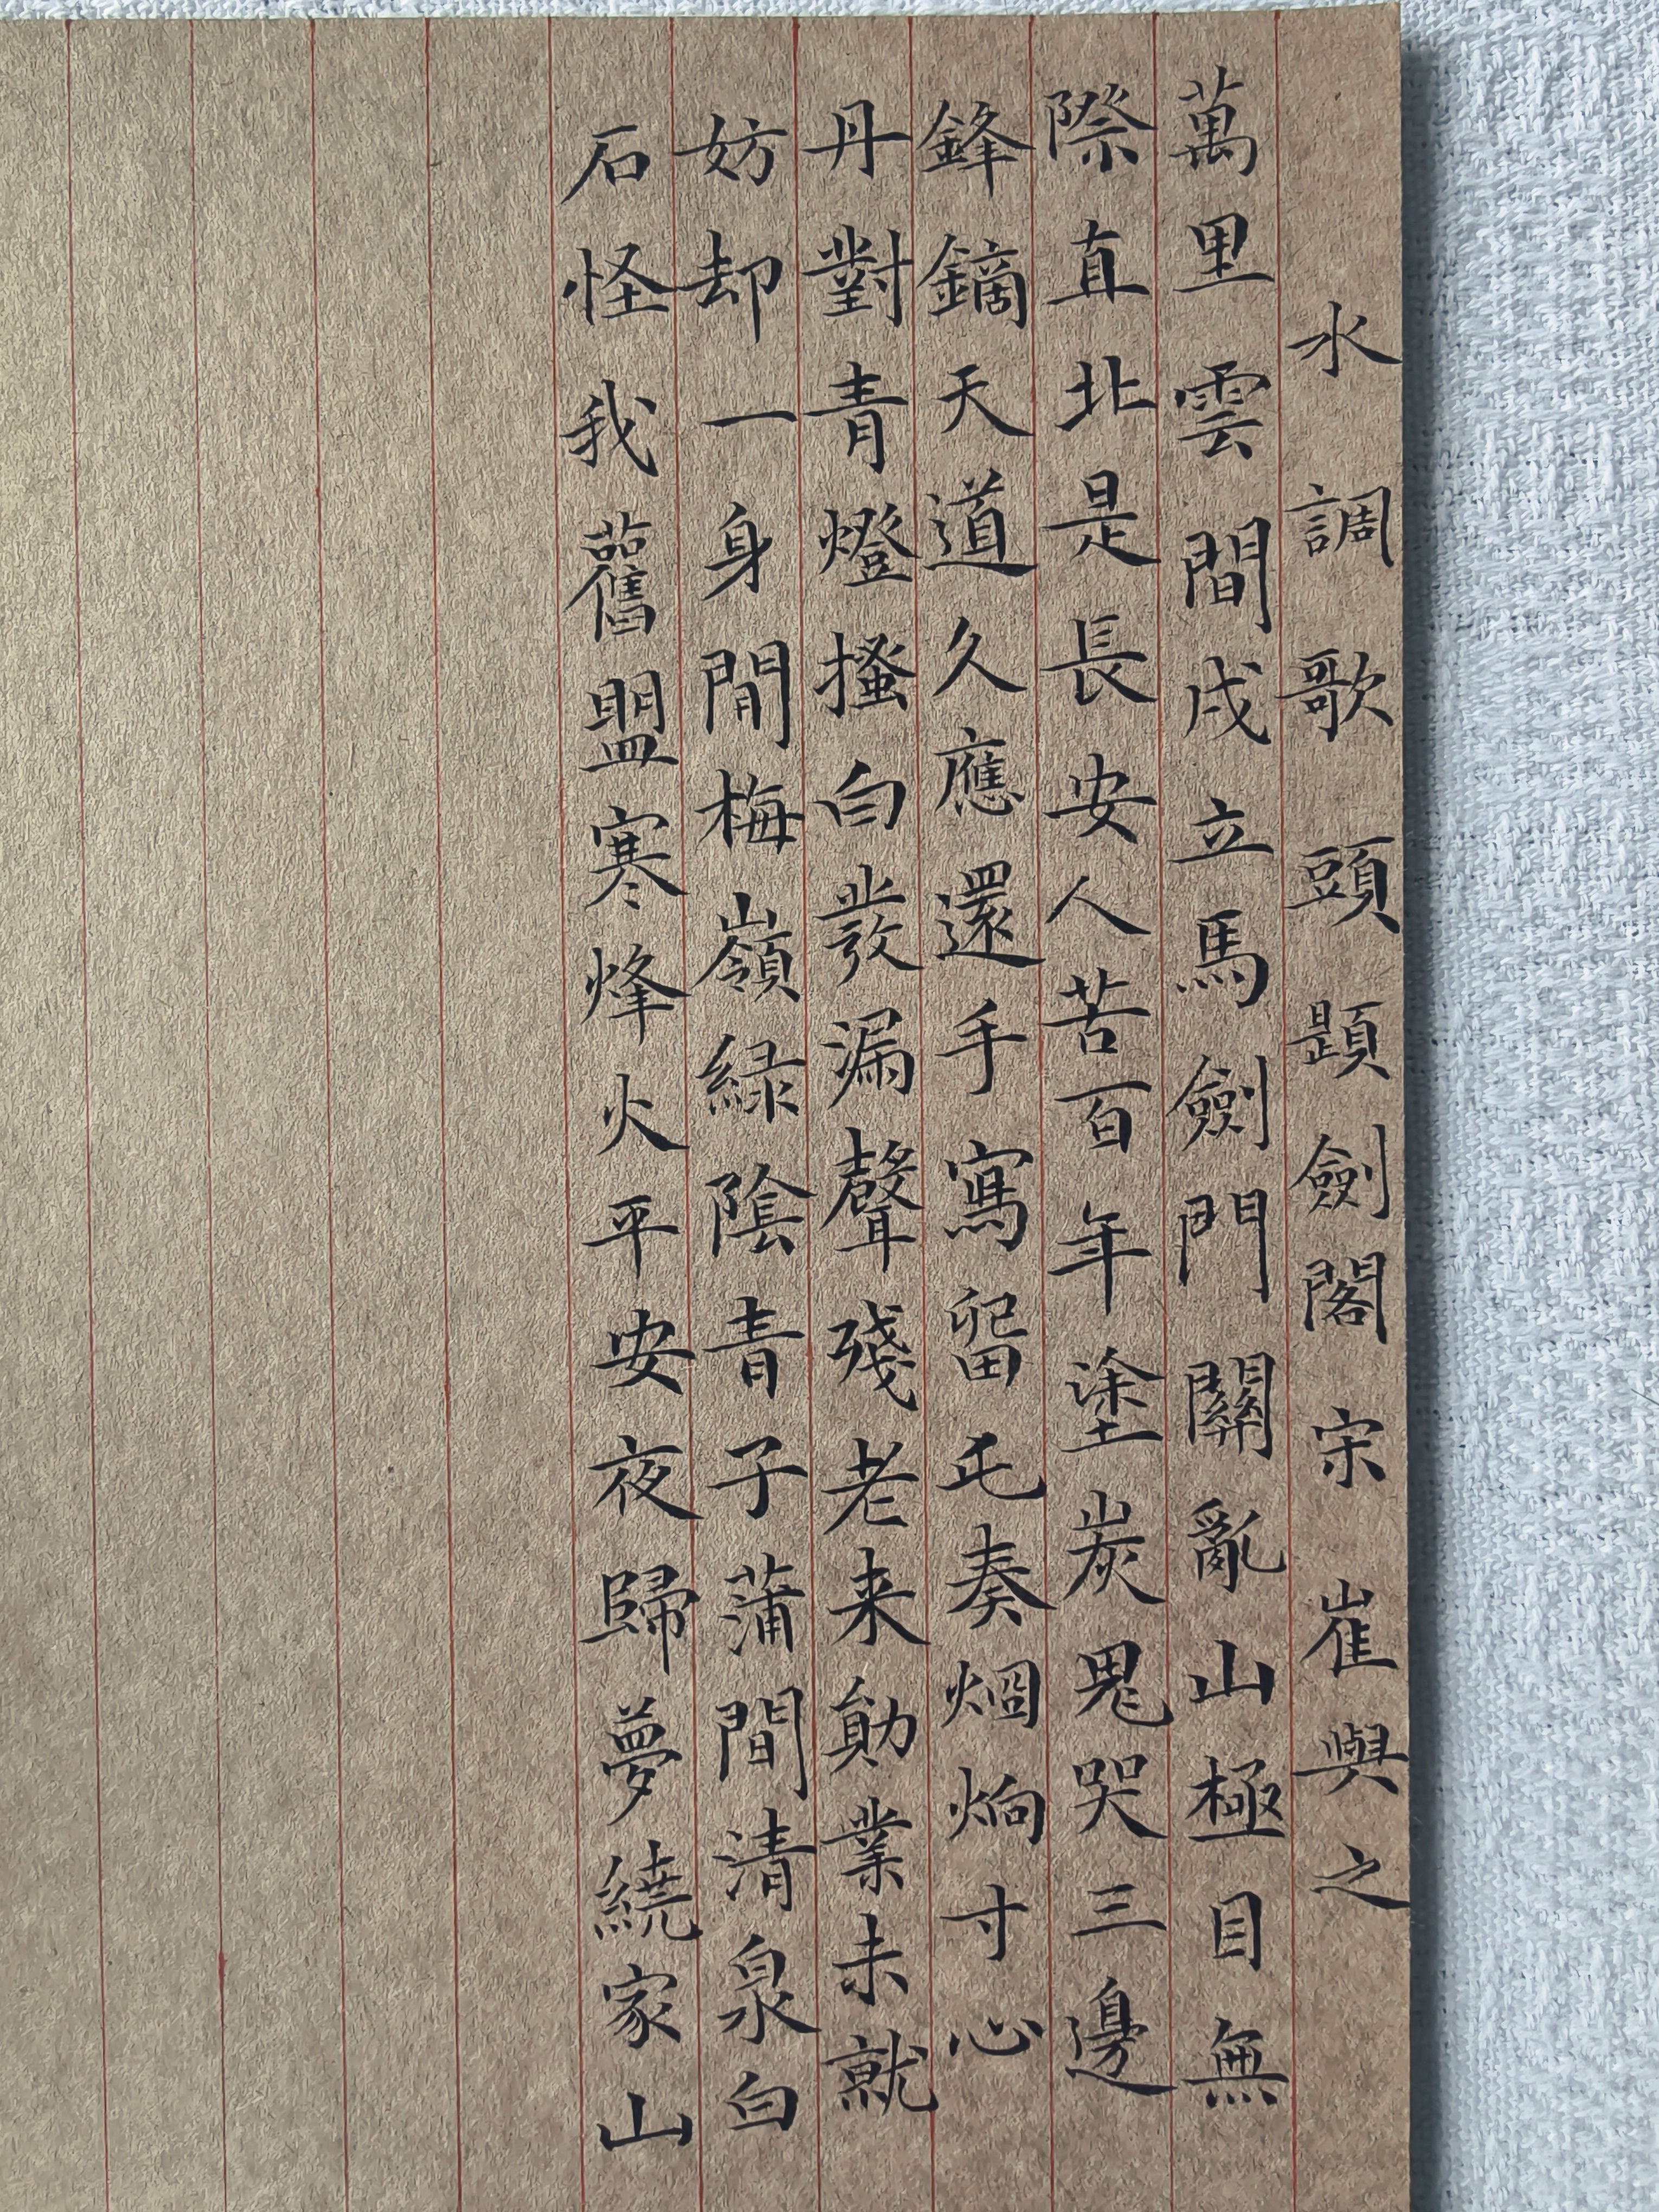 水調歌頭題劍閣宋崔與之
萬里雲間戍立馬劍門關亂山極目無
際直北是長安人苦百年塗炭鬼哭三邊
鋒鏑天道久應還手寫留屯奏炯炯寸心
丹對青燈搔白髮漏聲殘老来勛業未就
妨却一身閒梅嶺緑陰青子蒲間清泉白
石怪我舊盟寒烽火平安夜歸夢繞家山